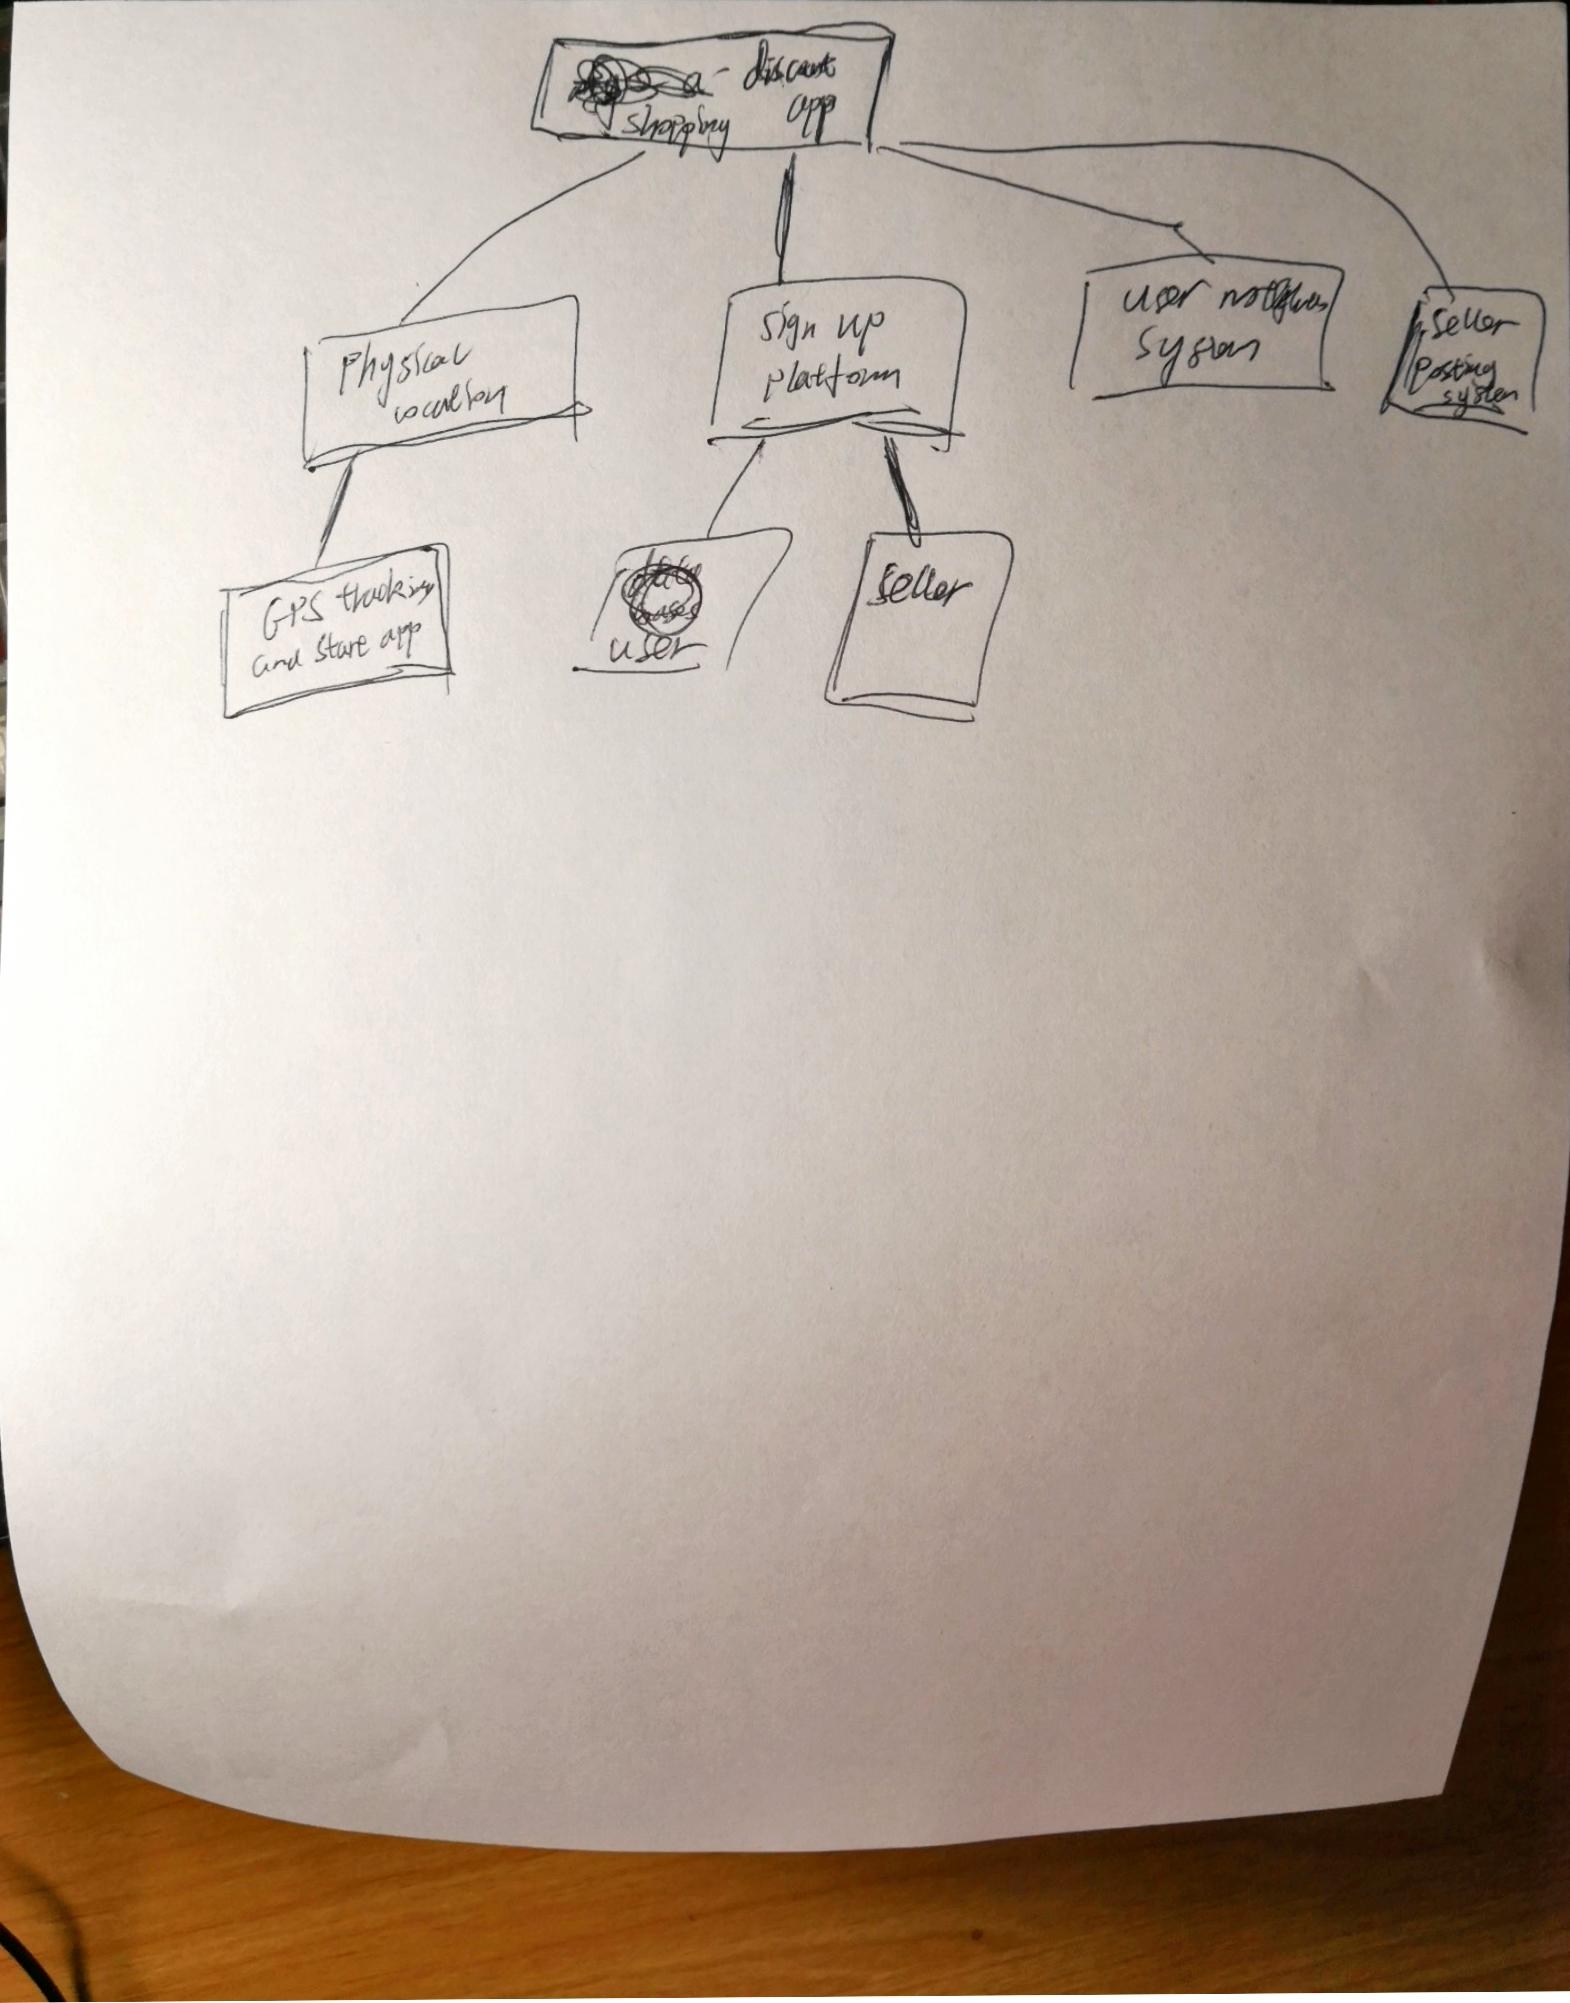 discount
shopping app
physical
location
sign up
platform
user
system
seller
posting
system
GPS tracking
and store app
user
seller